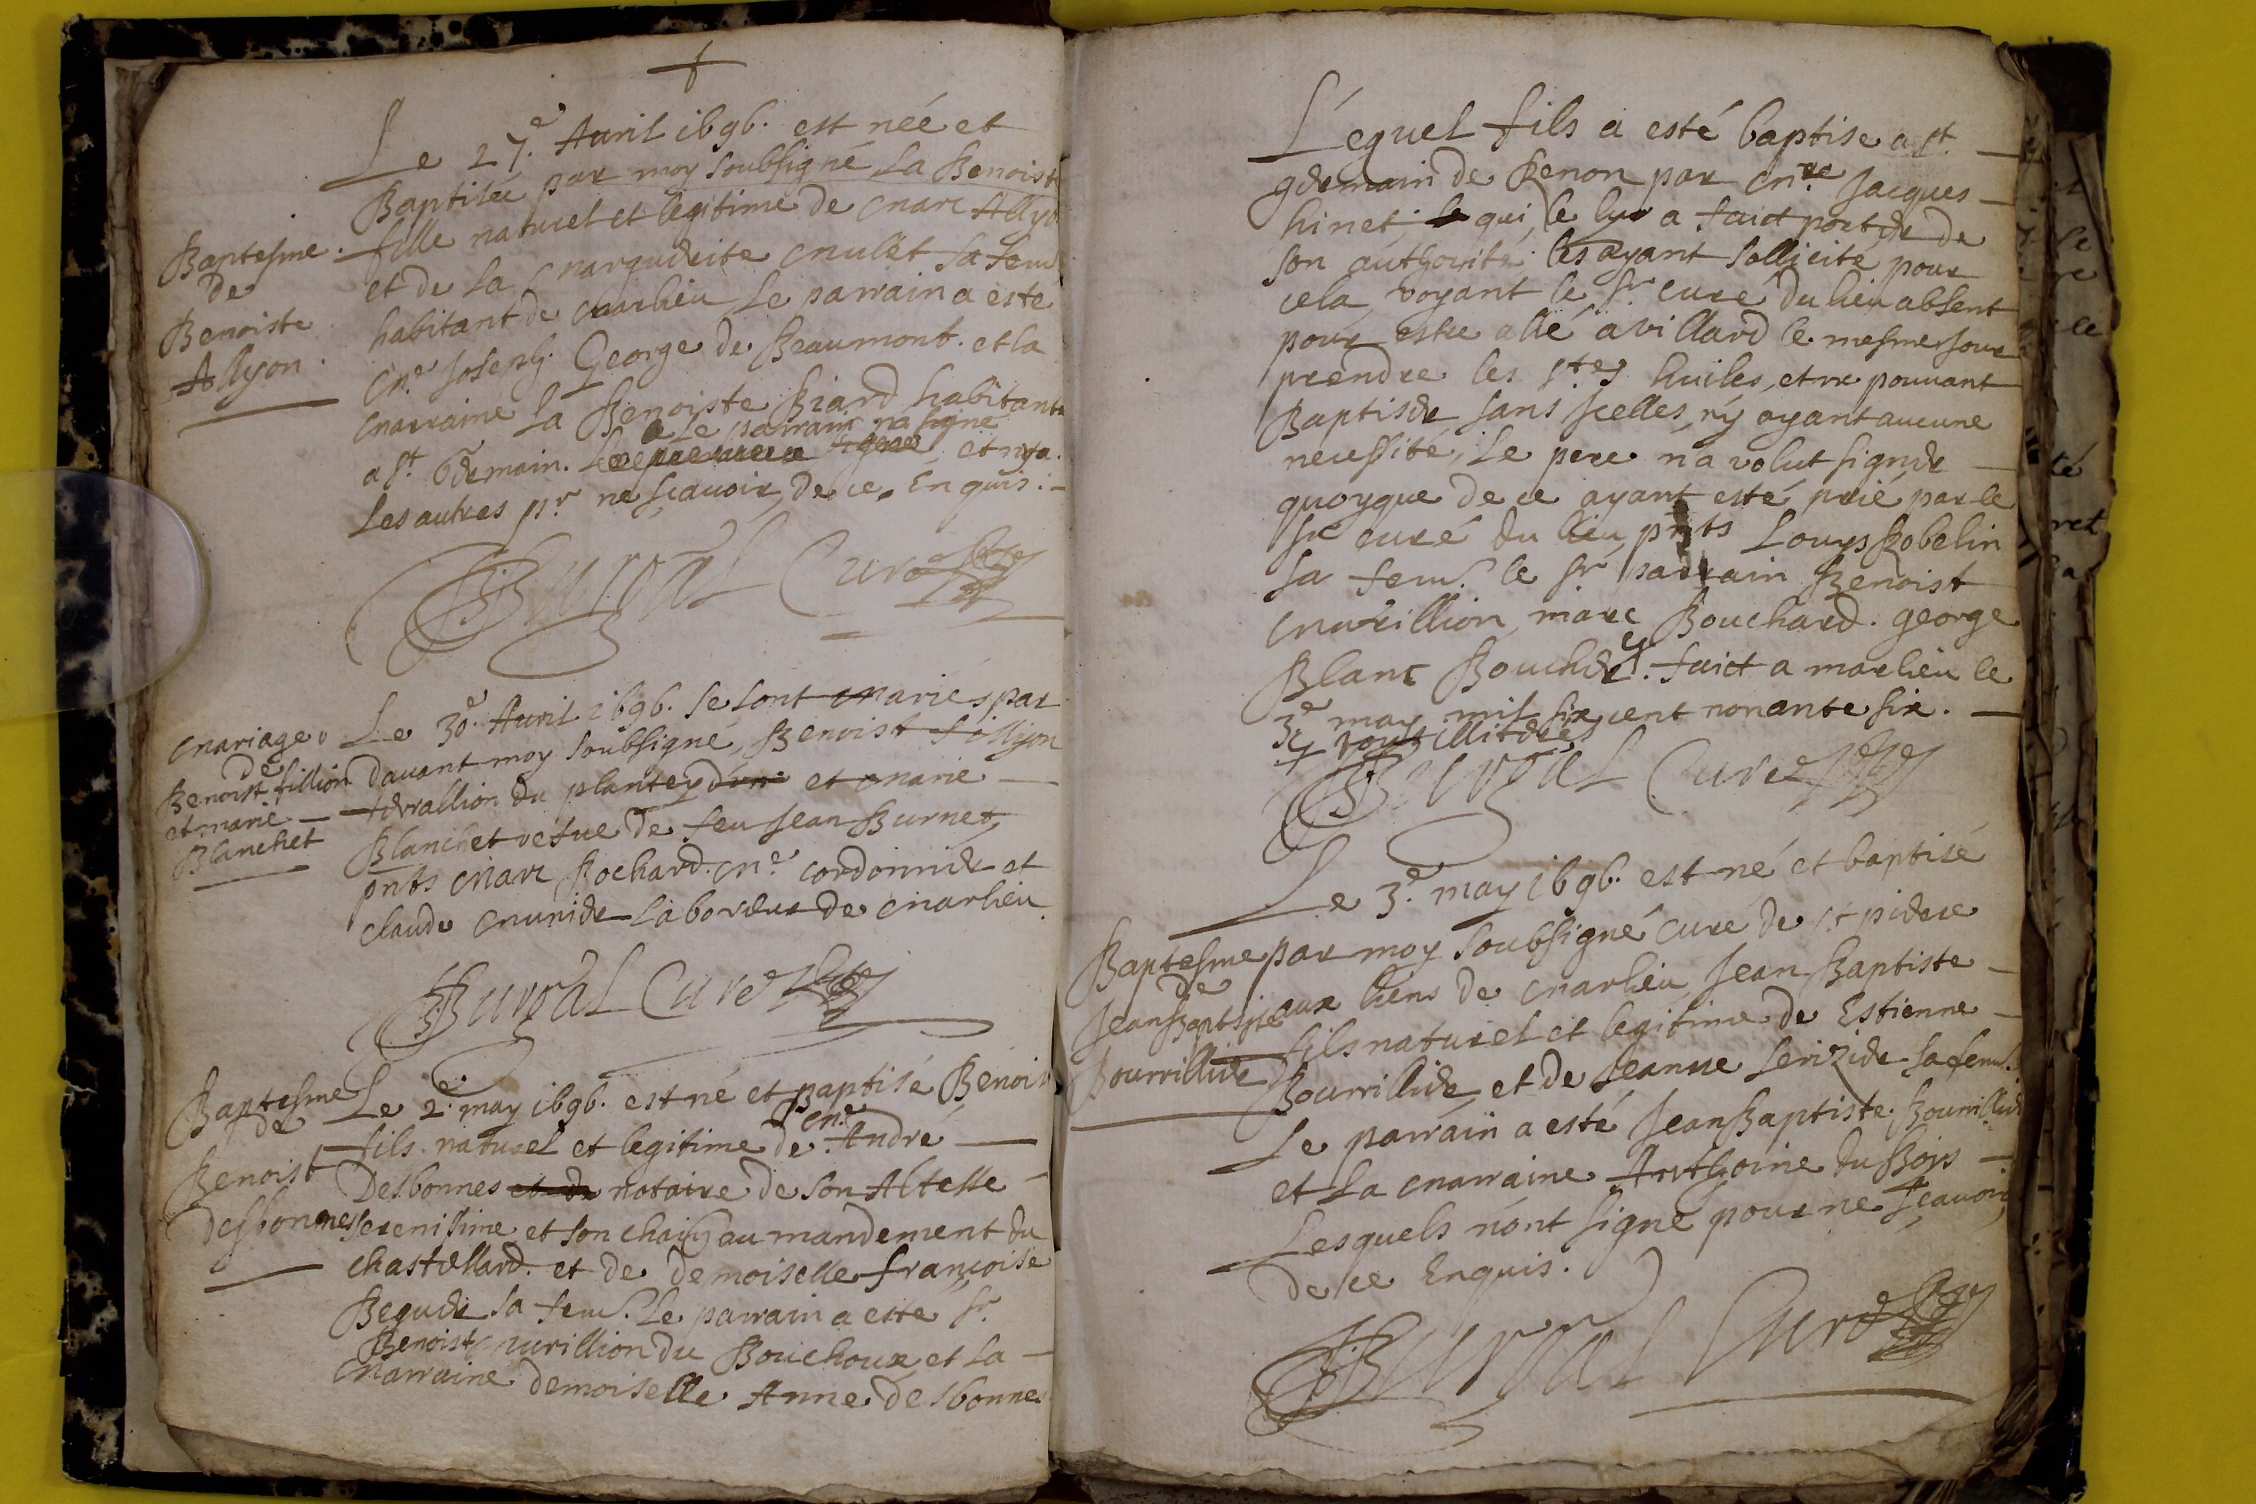 Le 27.e Auril 1696. est née et
Baptisée par moy soubsigné La Benoiste
fille naturel et legitime de Marc Allyon
et de La Marguerite Mulet sa fem
habitant de Marlieu Le parrain a este
Me Joseph George de Beaumont. et la
Marraine La Benoiste Biard habitante
Le parrain na signé
a St Germain. et nya.
Les autres pr ne sçauoir, de ce Enquis.
Burdal Curé
Baptesme
de
Benoiste
Allyon.
Le 30.e Auril 1696. se sont mariés par
dauant moy soubsigné, Benoist fillyon
du plantey et Marie
Blanchet vefue de feu Jean Burnet
pnts Marc Rochard. Me cordonnier et
claude Munier Laboreur de Marlieu.
Burdal Curé
Mariage
de
Benoist fillion
et marie
Blanchet
Le 2.e may 1696. est né et Baptisé Benoist
Me
fils naturel et legitime de André
Desbonnes et de notaire de son Altesse
serenissime et son au mandement du
Chastellard. et de demoiselle françoise
sa fem. Le parrain a esté Sr
Benoist Murillion du Bouchoux et La
Marraine demoiselle Anne desbonnes
Baptesme
de
Benoist
desbonnes
Lequel fils a esté baptise a St
germain de Renon par Mre Jacques
hinet qui le luy a faict porter de
son authorité les ayant sollicité pour
cela, voyant le Sr curé du lieu absent
pour estre allé a villard le mesme Jour
prendre les stes huiles, et ne pouuant
Baptiser sans Icelles ny ayant aucune
necessité, Le pere n'a volut signer
quoyque de ce ayant esté prié par le
Sr curé du lieu pnts Louys Robelin
sa fem. le Sr parrain Benoist
Murillion, marc Bouchard. george
Blanc Boucher. faict a marlieu le
3e may mil six cent nonante six.
tous illiterés
Burdal Curé
Le 3.e may 1696. est né et baptisé
par moy soubsigné curé de St pierre
aux liens de Marlieu Jean Baptiste
fils naturel et legitime de Estienne
Bourrillier et de Jeanne Serizier sa fem.
Le parrain a esté Jean Baptiste Bourrillier
et La Marraine Anthoine du Bois
Lesquels n'ont signé pour ne sçauoir
de ce Enquis.
Burdal Curé
Baptesme
de
Jean Baptiste
Bourrillier